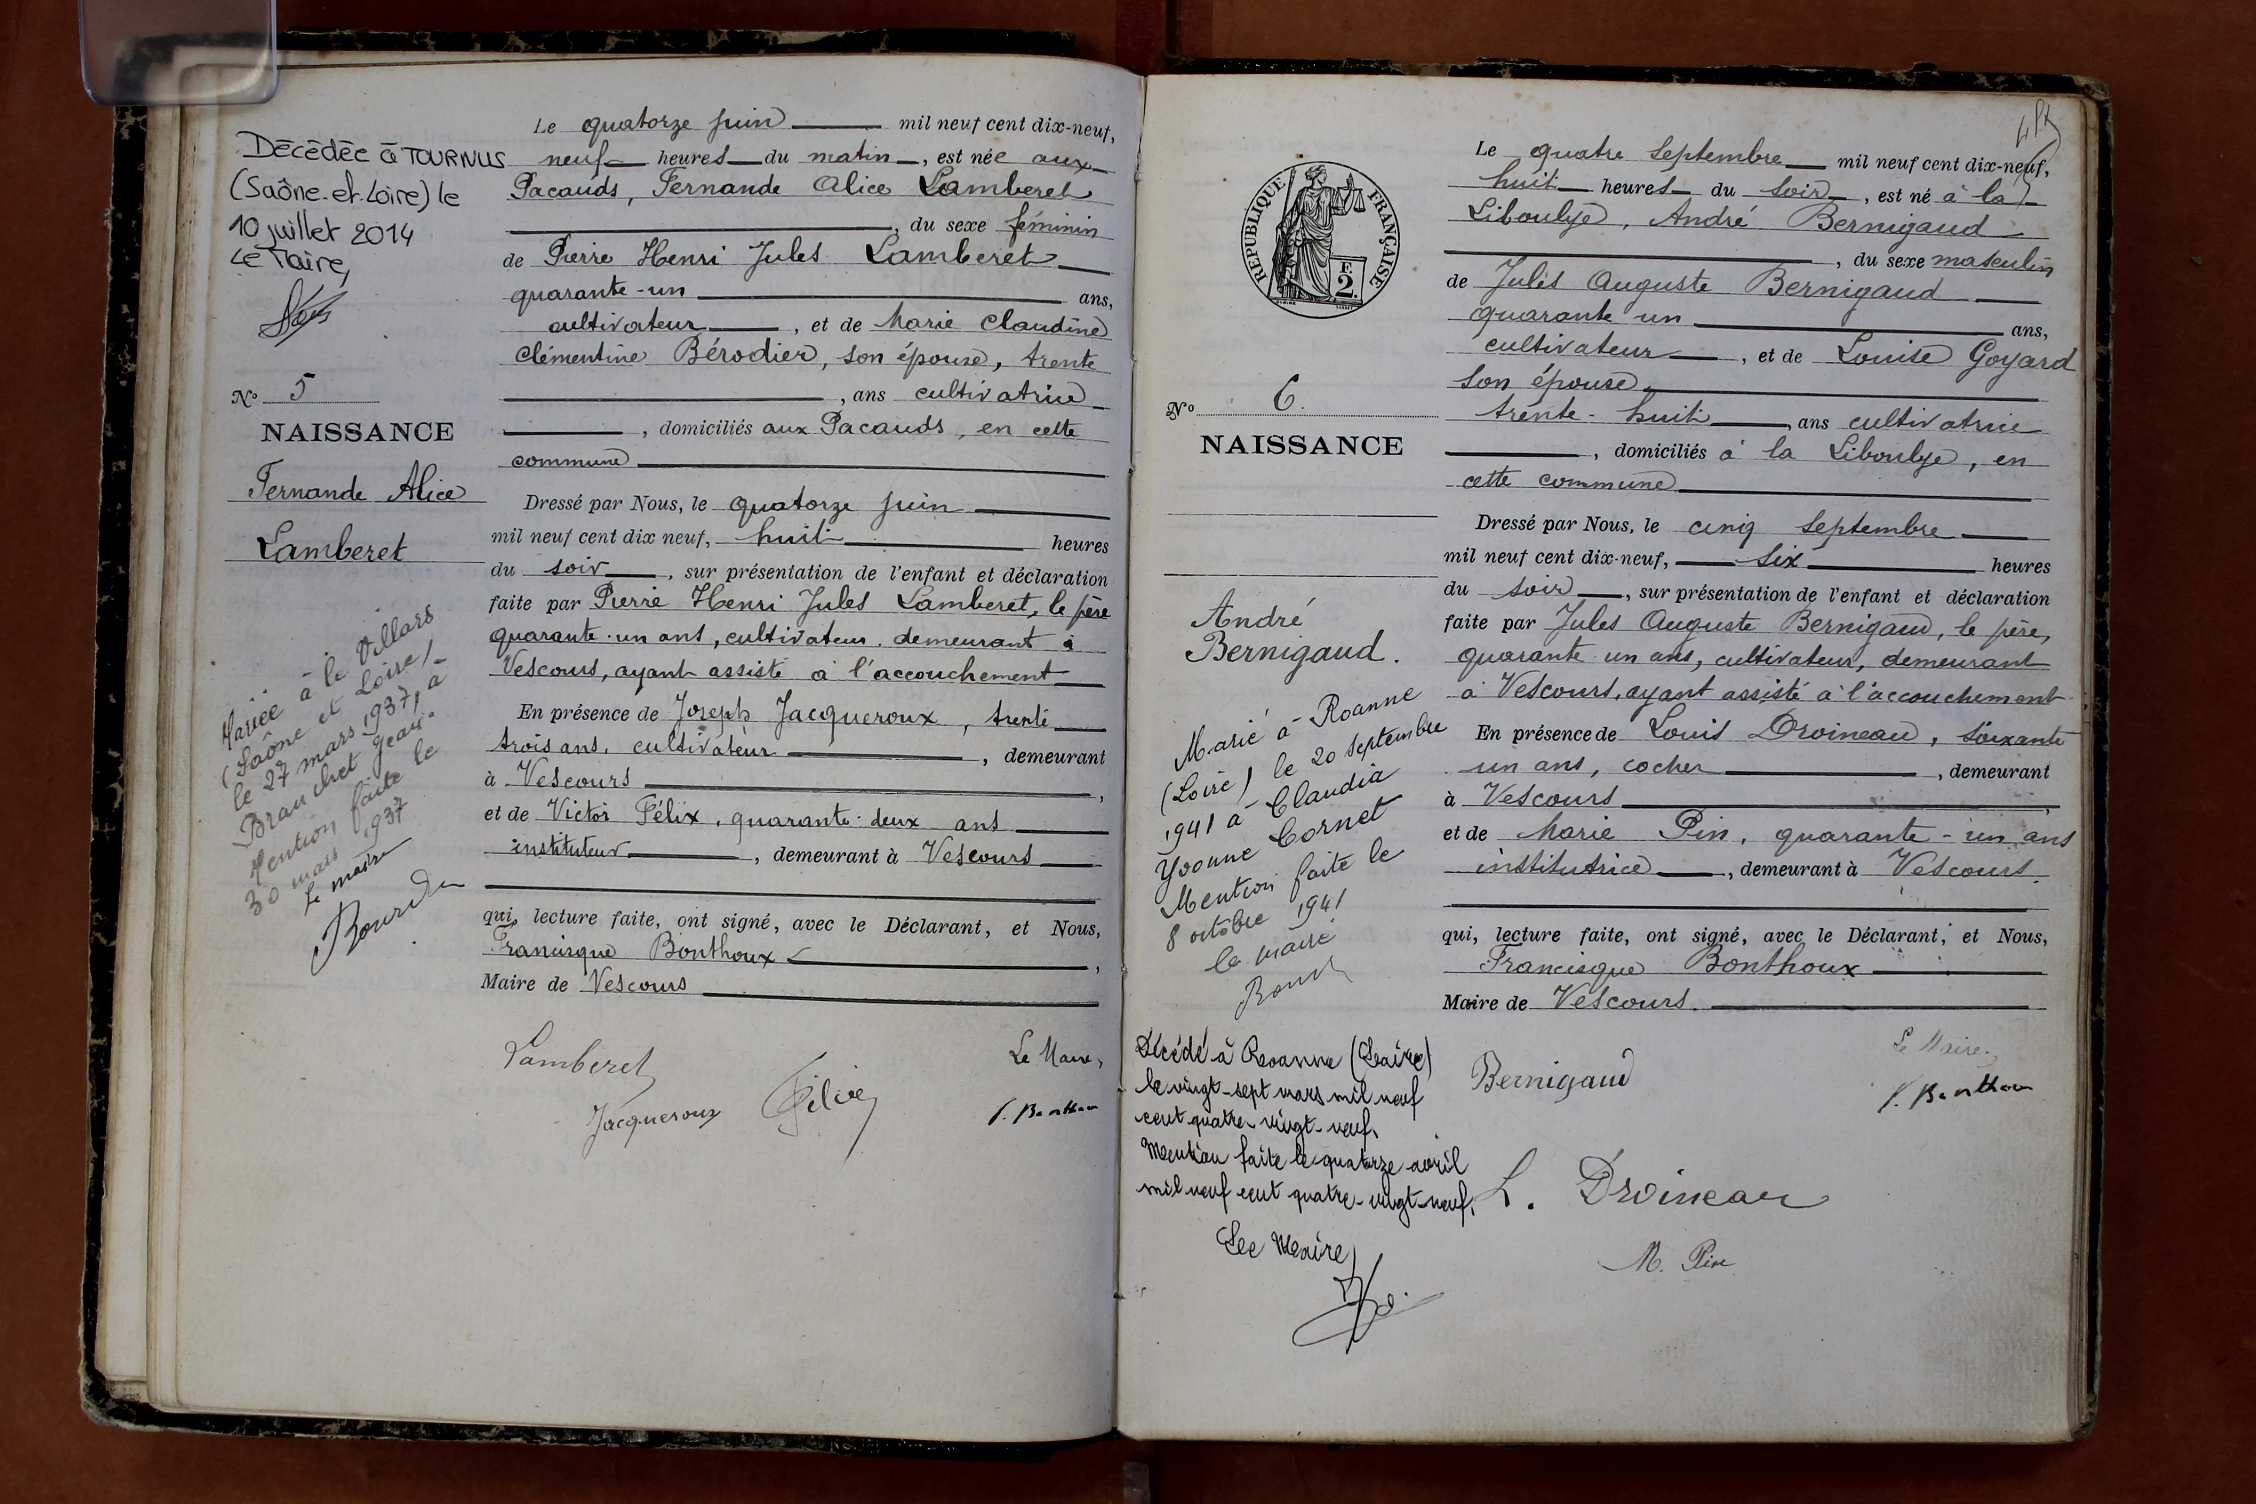 Décédée à TOURNUS
(Saône-et-Loire) le
10 juillet 2014
Le Maire,
Nº 5
NAISSANCE
Fernande Alice
Lamberet
Mariée à le Villars
(Saône et Loire)
le 27 mars 1937, à
Brauchet Jean
Mention faite le
30 mars 1937
Le maire
Le quatorze juin mil neuf cent dix-neuf,
neuf heures du matin, est née aux
Pacauds, Fernande Alice Lamberet
, du sexe féminin
de Pierre Henri Jules Lamberet
quarante-un ans,
cultivateur, et de Marie Claudine
Clémentine Bérodier, son épouse, trente
, ans cultivatrice
, domiciliés aux Pacauds, en cette
commune
Dressé par Nous, le quatorze juin
mil neuf cent dix neuf, huit heures
du soir, sur présentation de l'enfant et déclaration
faite par Pierre Henri Jules Lamberet, le père
quarante-un ans, cultivateur, demeurant à
Vescours, ayant assisté à l'accouchement
En présence de Joseph Jacqueroux, trente
trois ans, cultivateur, demeurant
à Vescours,
et de Victor Félix, quarante-deux ans
instituteur, demeurant à Vescours
qui, lecture faite, ont signé, avec le Déclarant, et Nous,
Francisque Bonthoux,
Maire de Vescours
Lamberet
Le Maire,
Jacqueroux Félix
F. Bonthoux
REPUBLIQUE FRANÇAISE
F.
2.
Nº 6.
NAISSANCE
André
Bernigaud.
Marié à Roanne
(Loire) le 20 septembre
1941 à Claudia
Yvonne Cornet
Mention faite le
8 octobre 1941
le maire
Décédé à Roanne (Loire)
le vingt-sept mars mil neuf
cent quatre-vingt-neuf.
Mention faite le quatorze avril
mil neuf cent quatre-vingt-neuf.
Le Maire,
Le quatre Septembre mil neuf cent dix-neuf,
huit heures du soir, est né à la
Liboulye, André Bernigaud
, du sexe masculin
de Jules Auguste Bernigaud
quarante un ans,
cultivateur, et de Louise Goyard
son épouse,
trente-huit, ans cultivatrice
, domiciliés à la Liboulye, en
cette commune
Dressé par Nous, le cinq Septembre
mil neuf cent dix-neuf, six heures
du soir, sur présentation de l'enfant et déclaration
faite par Jules Auguste Bernigaud, le père,
quarante-un ans, cultivateur, demeurant
à Vescours, ayant assisté à l'accouchement
En présence de Louis Droineau, soixante
un ans, cocher, demeurant
à Vescours,
et de Marie Pin, quarante-un ans
institutrice, demeurant à Vescours.
qui, lecture faite, ont signé, avec le Déclarant, et Nous,
Francisque Bonthoux
Maire de Vescours.
Le Maire,
Bernigaud
F. Bonthoux
L. Droineau
M. Pin